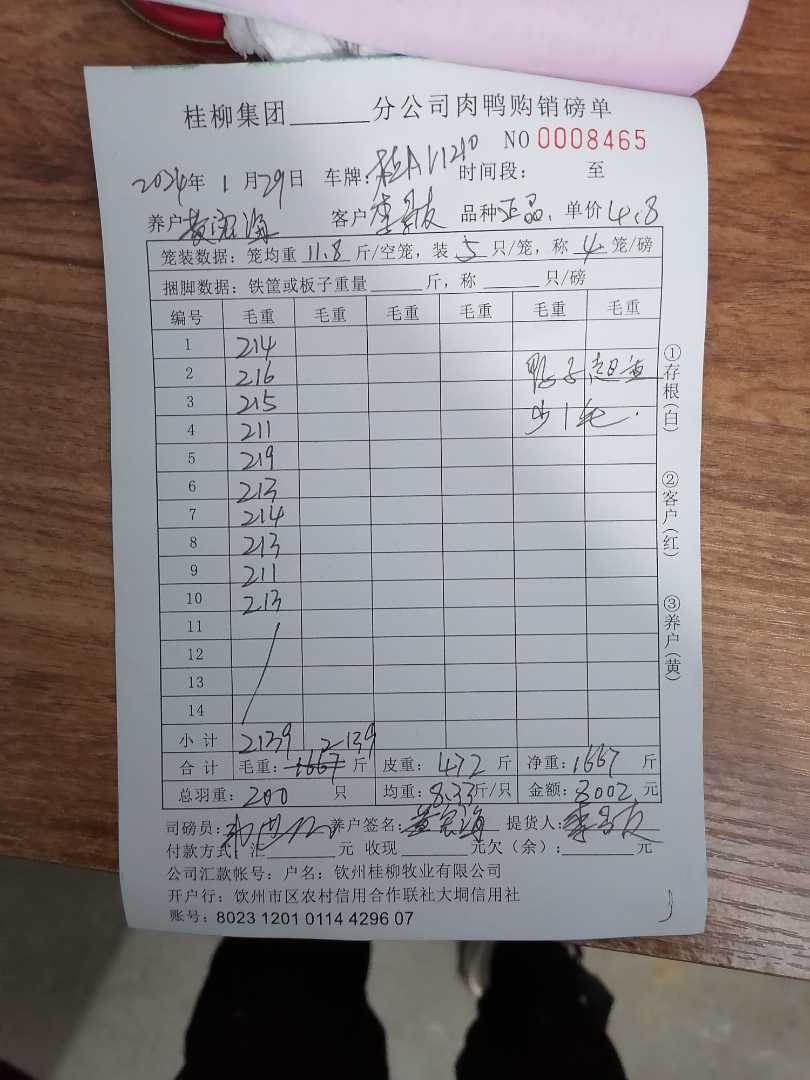 桂柳集团______分公司肉鸭购销磅单
NO 0008465
2024年 1 月29日 车牌:桂A V1210 时间段: 至
养户 客户 李 友 品种 正品. 单价 4.8
笼装数据: 笼均重 11.8 斤/空笼, 装 5 只/笼, 称 4 笼/磅
捆脚数据: 铁筐或板子重量______斤, 称______只/磅
编号 毛重 毛重 毛重 毛重 毛重 毛重
1 214
2 216 鸭子
3 215
4 211 少1
5 219
6 213
7 214
8 213
9 211
10 213
11
12
13
14
小计 2139 2139
合计 毛重: 1667 斤 皮重: 472 斤 净重: 1667 斤
总羽重: 200 只 均重: 8.33斤/只 金额: 8002 元
司磅员: 养户签名: 黄 海 提货人: 李 友
付款方式: 汇______元 收现______元欠(余):______元
公司汇款帐号: 户名: 钦州桂柳牧业有限公司
开户行: 钦州市区农村信用合作联社大垌信用社
账号: 8023 1201 0114 4296 07
①存根(白)
②客户(红)
③养户(黄)